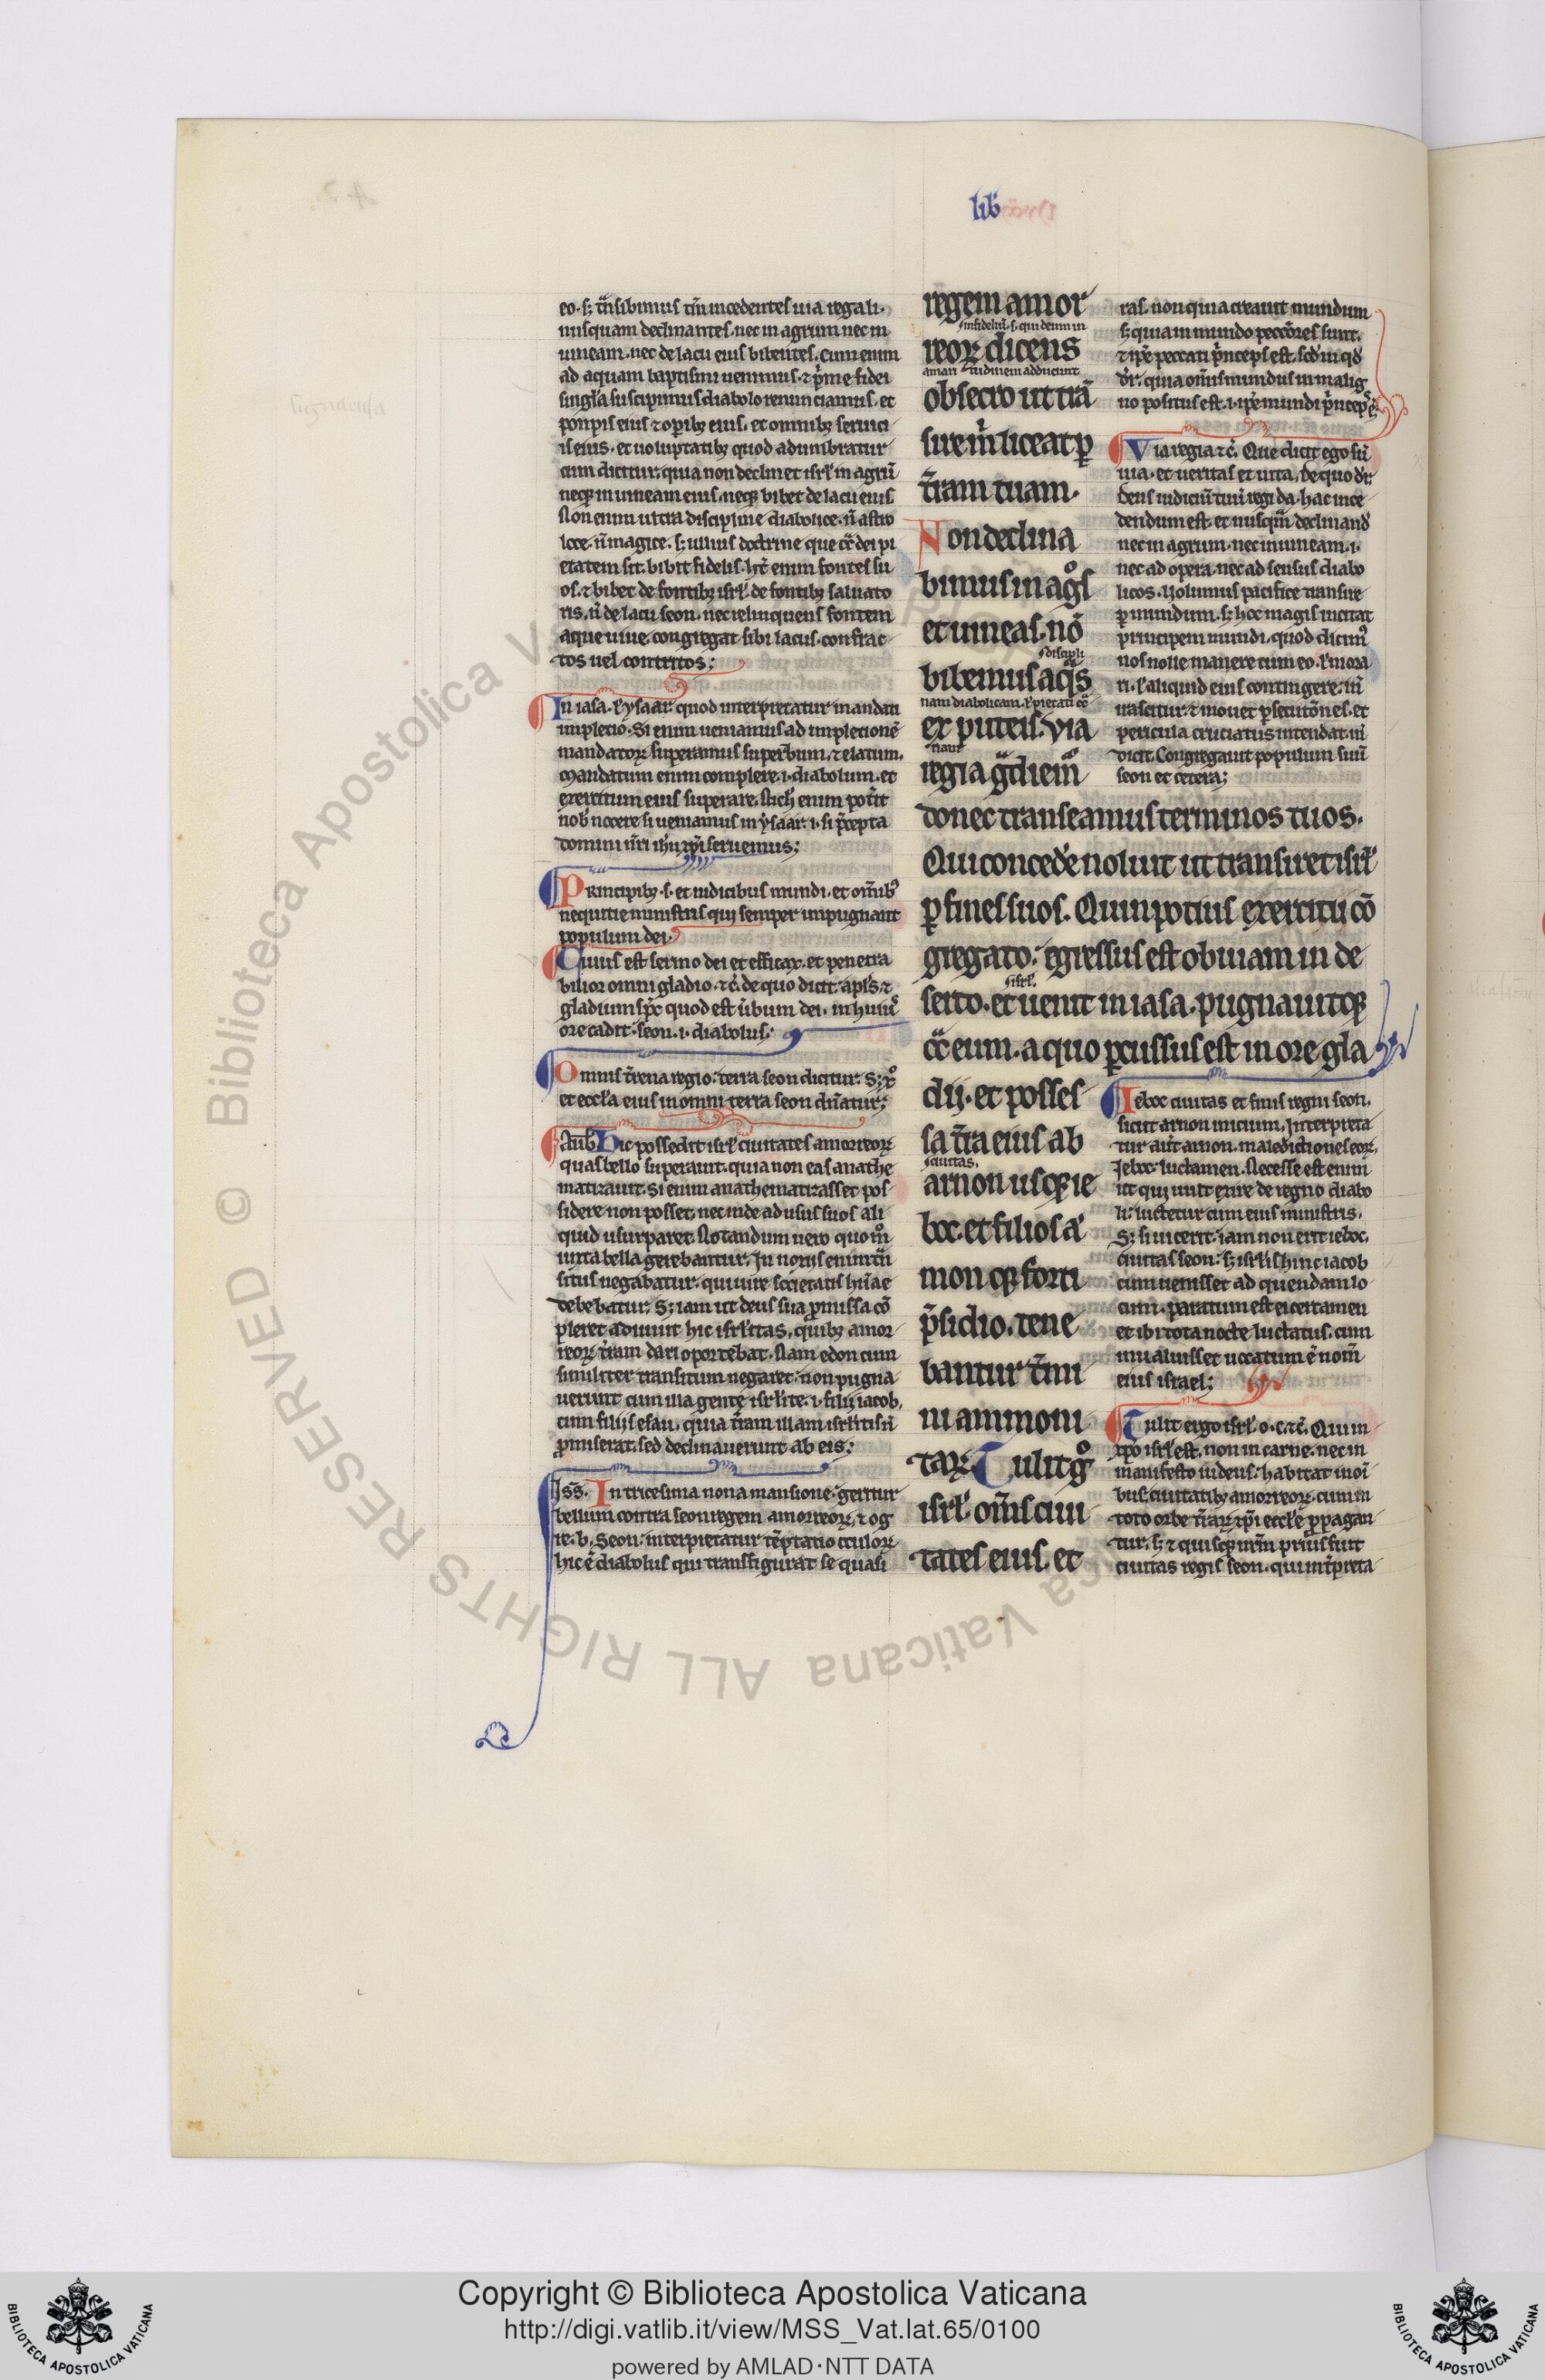 lib̃
eo. s; t̃nsibimus t̃m incedentes uia regali.
nusquam declinantes. nec in agrum nec in
uineam. nec de lacu eius bibentes. Cum enim
ad aquam baptismi uenimus. ⁊ p̃me fidei
singl̃a suscipimus diabolo renunciamus. et
ponpis eius ⁊ opib; eius. et omnib; serui
iis eius. et uoluptatib; quod adumbratur
cum dicitur. quia non declinet isrł in agrũ
neq; in uineam eius. neq; bibet de lacu eius
Non enim ultra discipline diabolice. ñ astro
loẽ. ñ magice. s; ullius doctrine que cõt̃ dei pi
etatem sit. bibit fidelis. h̃t enim fontes su
os. ⁊ bibet de fontib; isrł. de fontib; saluato
ris. ñ de lacu seon. nec relinquens fontem
aque uiue. congregat sibi lacus. confrac
tos uel contritos;
In iasa. ł ysaar. quod interpretatur mandati
impletio. Si enim ueniamus ad impletionẽ
mandatoꝝ superamus superbum. ⁊ elatum.
Mandatum enim complere. i. diabolum. et
exercitum eius superare. Nich̃ enim pot̃it
nob̃ nocere si ueniamus in ysaar. i. si p̃cepta
domini ñri ih̃u xp̃i seruemus;
Principib; .s. et iudicibus mundi. et om̃ib;
nequitie ministris qui semper inpugnant
populum dei.
Ciuius est sermo dei et efficax. et penetra
bilior omni gladio. ⁊c̃. de quo dicit apl̃s. ⁊
gladium sp̃c quod est ũbum dei. in huiꝰ
ore cadit. seon. i. diabolus;
Omnis t̃rena regio. terra seon dicitur. S; xp̃c
et eccl̃a eius in omni terra seon dñatur;
Aub̃. Hic possedit isrł ciuitates amorreoꝝ
quas bello superauit. quia non eas anathe
matizauit. Si enim anathematizasset pos
sidere non posset. nec inde ad usus suos ali
quid usurparet. Notandum uero quom̃
iusta bella gerebantur. Innoxius enim t̃n
situs negabatur. qui iure societatis hũane
debebatur. S; iam ut deus sua p̃missa cõ
pleret adiuuit hic isrłitas. quib; amor
reoꝝ t̃ram dari oportebat. Nam edon cum
similiter transitum negaret. non pugna
uerunt cum illa gente isrłite. i. filij iacob.
cum filijs esau. quia t̃ram illam isrłitis ñ
p̃miserat. sed declinauerunt ab eis;
Iss̃. In tricesima nona mansione. geritur
bellum contra seon regem amorreoꝝ. ⁊ og
re. b. Seon. interpretatur tẽptatio oculoꝝ
hic ẽ diabolus qui transfigurat se quasi
regem amor
.s. infidelium .s. qui deum in
reoꝝ dicens
amari tudinem adducunt
obsecro ut trã
sire m̃ liceat p
t̃ram tuam.
Non declina
bimus in ag̊s
et uineas. nõ
.s. discipli
bibemus aq̃s
nam diabolicam. ł pietati cõt̃
ex puteis. Via
riam
regia g̃diem̃
donec transeamus terminos tuos.
Qui concede᷑ noluit ut transiret isrł
p fines suos. Quin potius exercitu cõ
gregato. egressus est obuiam in de
.s. isrł.
serto. et uenit in iasa. pugnauitq;
cõt̃ eum. a quo pcussus est in ore gla
dij. et posses
sa t̃ra eius ab
.s. ciuitas.
arnon usq; ie
boc. et filios ã
mon. q; forti
p̃sidio. tene
bantur t̃mi
ni ammoni
taꝝ. Tulit g̊
isrł om̃s ciui
tates eius. et
ras. non quia creauit mundum
s; quia in mundo peccõres sunt.
⁊ ip̃e peccati p̃nceps est. scd̃m qd̃
dr̃. quia om̃is mundus in malig
no positus est. i. ip̃e mundi p̃nceps ẽ.
Via regia ⁊c̃. Que dicit ego sũ
uia. et ueritas et uita. de quo dr̃.
deus iudiciũ tuũ regi da. hac ince
dendum est. et nusq̃m declinand̃
nec in agrum. nec in uineam. i.
nec ad opera. nec ad sensus diabo
licos. Volumus pacifice transire
p mundum. s; hoc magis incitat
principem mundi. quod dicimꝰ
nos nolle manere cum eo. ł mora
ri. ł aliquid eius contingere. iñ
irascitur. ⁊ mouet p̃secutõnes. et
pericula cruciatus intendat. iñ
dicit. Congregauit populum suũ
seon et cetera;
Ieboc ciuitas et finis regni seon.
sicut arnon inicium. Interpreta
tur aũt arnon. maledictiones eoꝝ.
Ieboc. luctamen. Necesse est enim
ut qui uult exire de regno diabo
li. luctetur cum eius ministris.
S; si uicerit. iam non erit ieboc.
ciuitas seon. s; isrłis. hinc iacob
cum uenisset ad quendam lo
cum. paratum est ei certamen
et ibi tota nocte luctatus. cum
inualuisset uocatum ẽ nom̃
eius israel;
Tulit ergo isrł .o. c. ⁊c̃. Qui in
xp̃o isrł est. non in carne. nec in
manifesto iudeus. habitat in oĩ
bus ciuitatib; amorreoꝝ. cum in
toto orbe t̃raꝝ xp̃i eccłe p̃pagan
tur. s; ⁊ quisq; nr̃m prius fuit
ciuitas regis seon. qui int̃preta
Copyright © Biblioteca Apostolica Vaticana
http://digi.vatlib.it/view/MSS_Vat.lat.65/0100
powered by AMLAD·NTT DATA